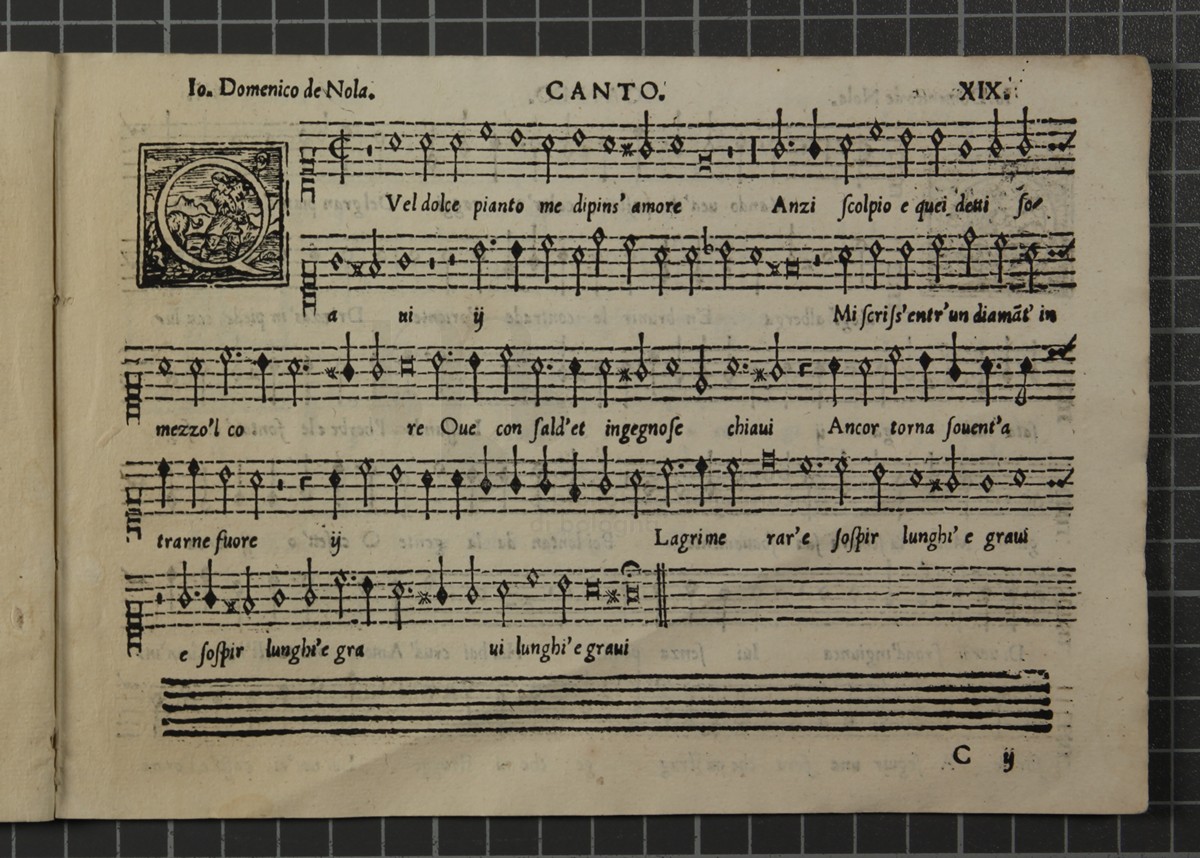 Io. Domenico de Nola. CANTO. XIX.
QVel dolce pianto me dipins' amore Anzi ſcolpio e quei detti ſo-
a ui ij Mi ſcriſs'entr'un diamāt' in
mezzo'l co re Oue con ſald'et ingegnoſe chiaui Ancor torna ſouent'a
trarne fuore ij Lagrime rar'e ſoſpir lunghi' e graui
e ſoſpir lunghi'e gra ui lunghi'e graui
C ij